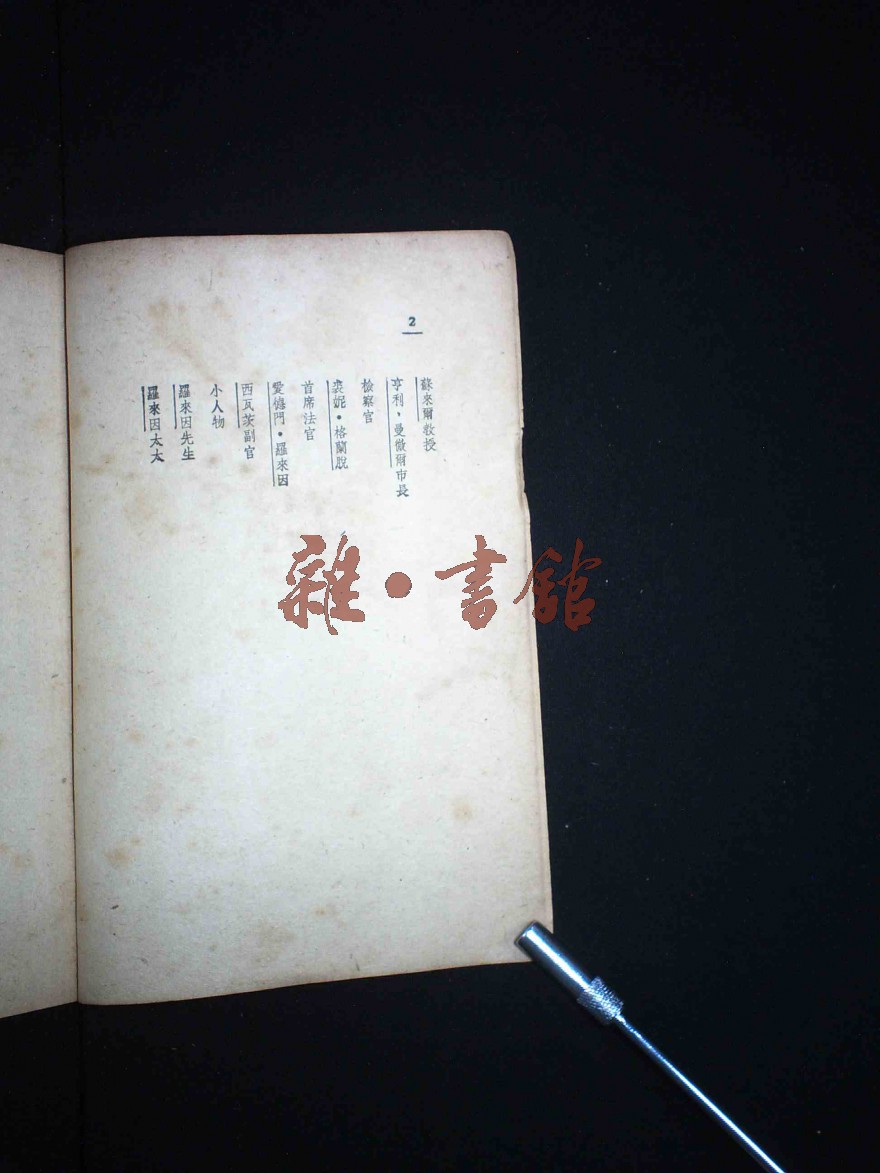 2
蘇來爾教授
亨利·曼徹爾市長
檢察官
裘妮·格蘭脫
首席法官
愛德門·羅來因
西瓦茨副官
小人物
羅來因先生
羅來因太太
雜·書館